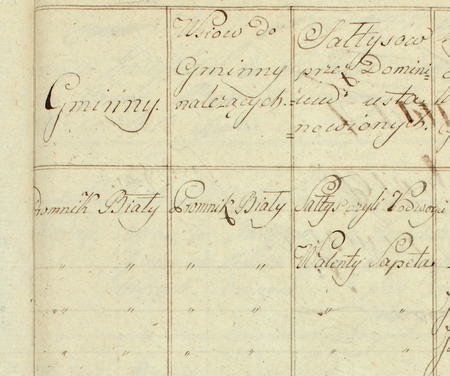 Gminny.
Wsiow do
Gminny
należących.
Sałtysów
przez Domini=
=ium usta=
=nowionych.
Promnik Biały
Promnik Biały
Sałtys czyli
" "
" "
Walenty Sapeta
" "
" "
" "
" "
" "
" "